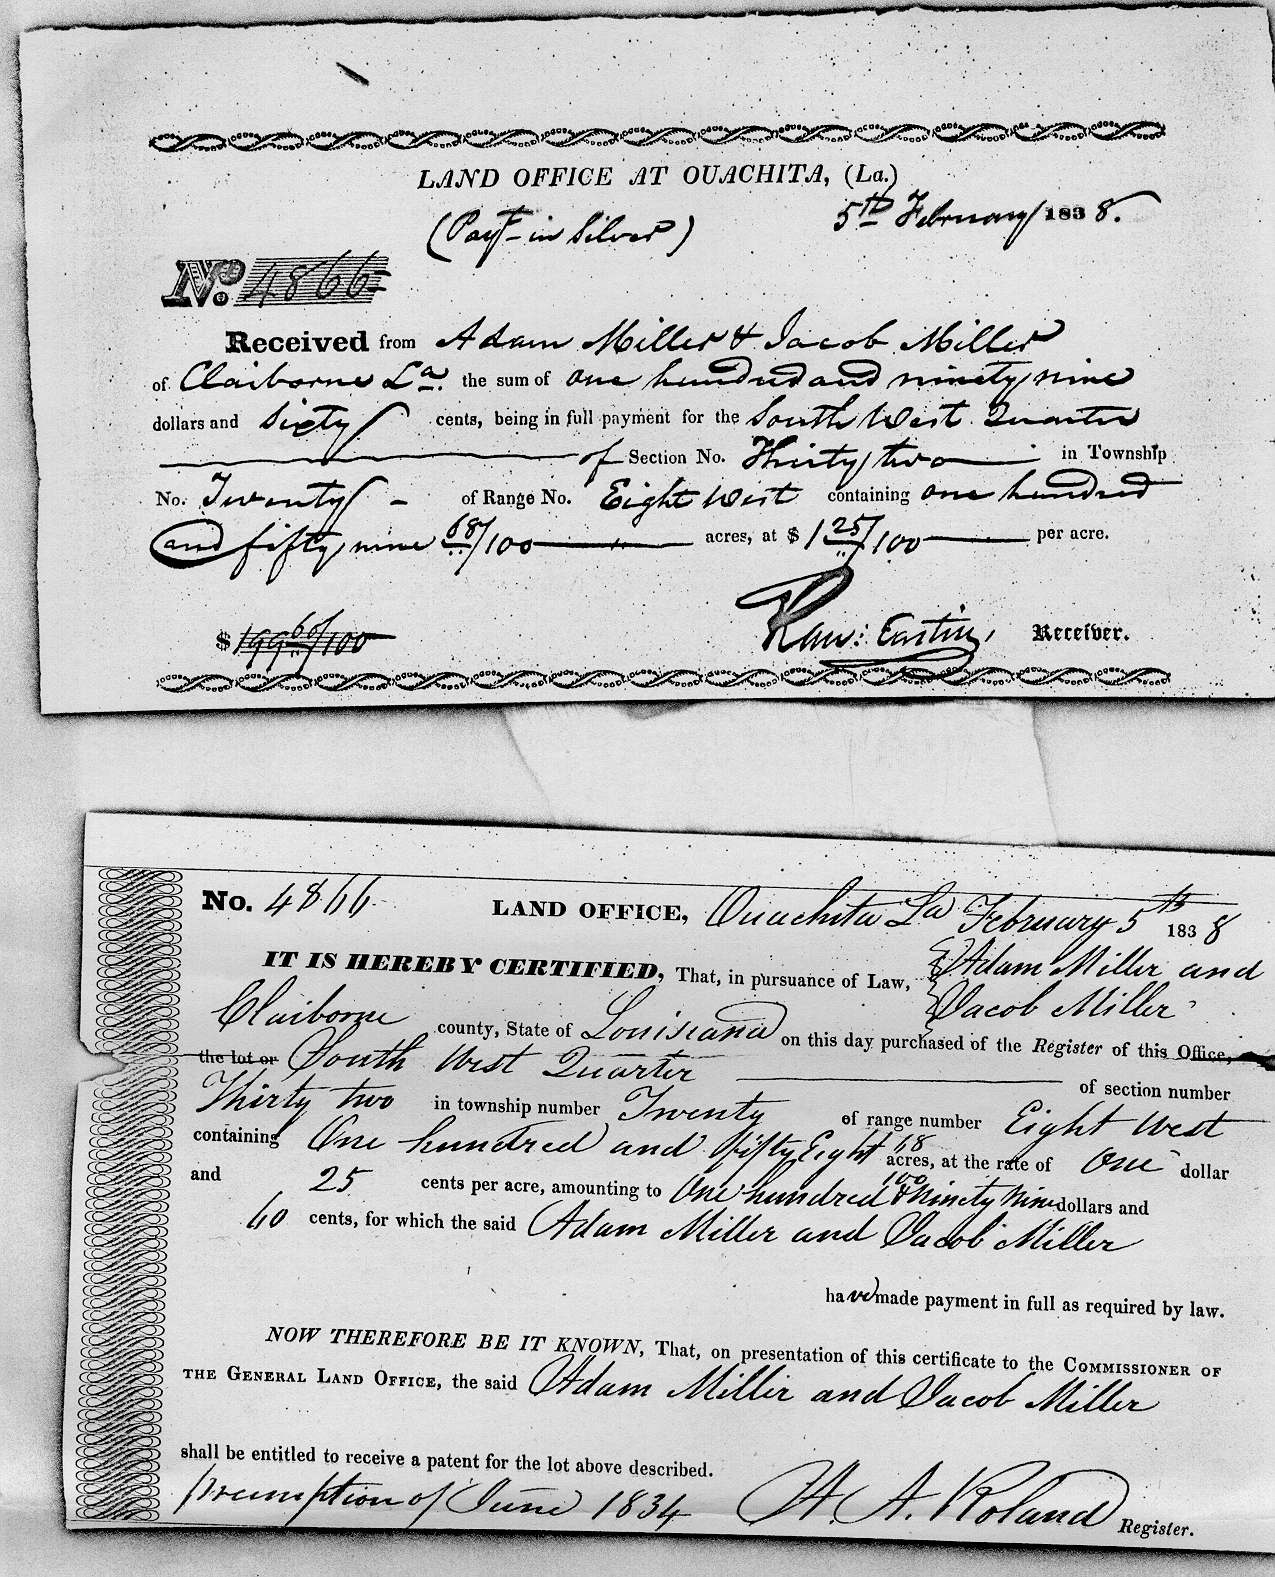 LAND OFFICE AT OUACHITA, (La.)
5th February 1838.
(Payt in Silver)
No. 4866
Received from Adam Miller & Jacob Miller
of Claiborne La. the sum of one hundred and ninety nine
dollars and Sixty cents, being in full payment for the South West Quarter
of Section No. Thirty two in Township
No. Twenty of Range No. Eight West containing one hundred
and fifty nine 68/100 acres, at $ 1 25/100 per acre.
$ 199 60/100
Receiver.
No. 4866 LAND OFFICE, Ouachita La February 5th 1838
IT IS HEREBY CERTIFIED, That, in pursuance of Law, Adam Miller and
Jacob Miller
Claiborne county, State of Louisiana on this day purchased of the Register of this Office,
the lot or South West Quarter of section number
Thirty two in township number Twenty of range number Eight West
containing One hundred and fifty Eight 68/100 acres, at the rate of One dollar
and 25 cents per acre, amounting to One hundred & Ninety Nine dollars and
60 cents, for which the said Adam Miller and Jacob Miller
have made payment in full as required by law.
NOW THEREFORE BE IT KNOWN, That, on presentation of this certificate to the COMMISSIONER OF
THE GENERAL LAND OFFICE, the said Adam Miller and Jacob Miller
shall be entitled to receive a patent for the lot above described.
Preemption of June 1834 H. A. Roland Register.